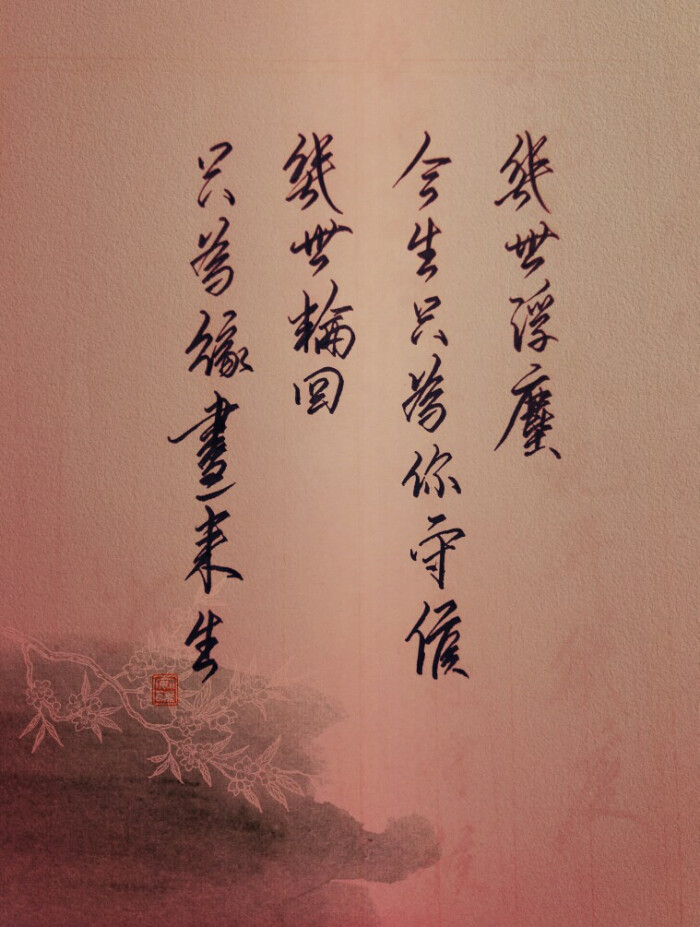 幾世浮塵
今生只為你守候
幾世輪回
只為緣盡來生